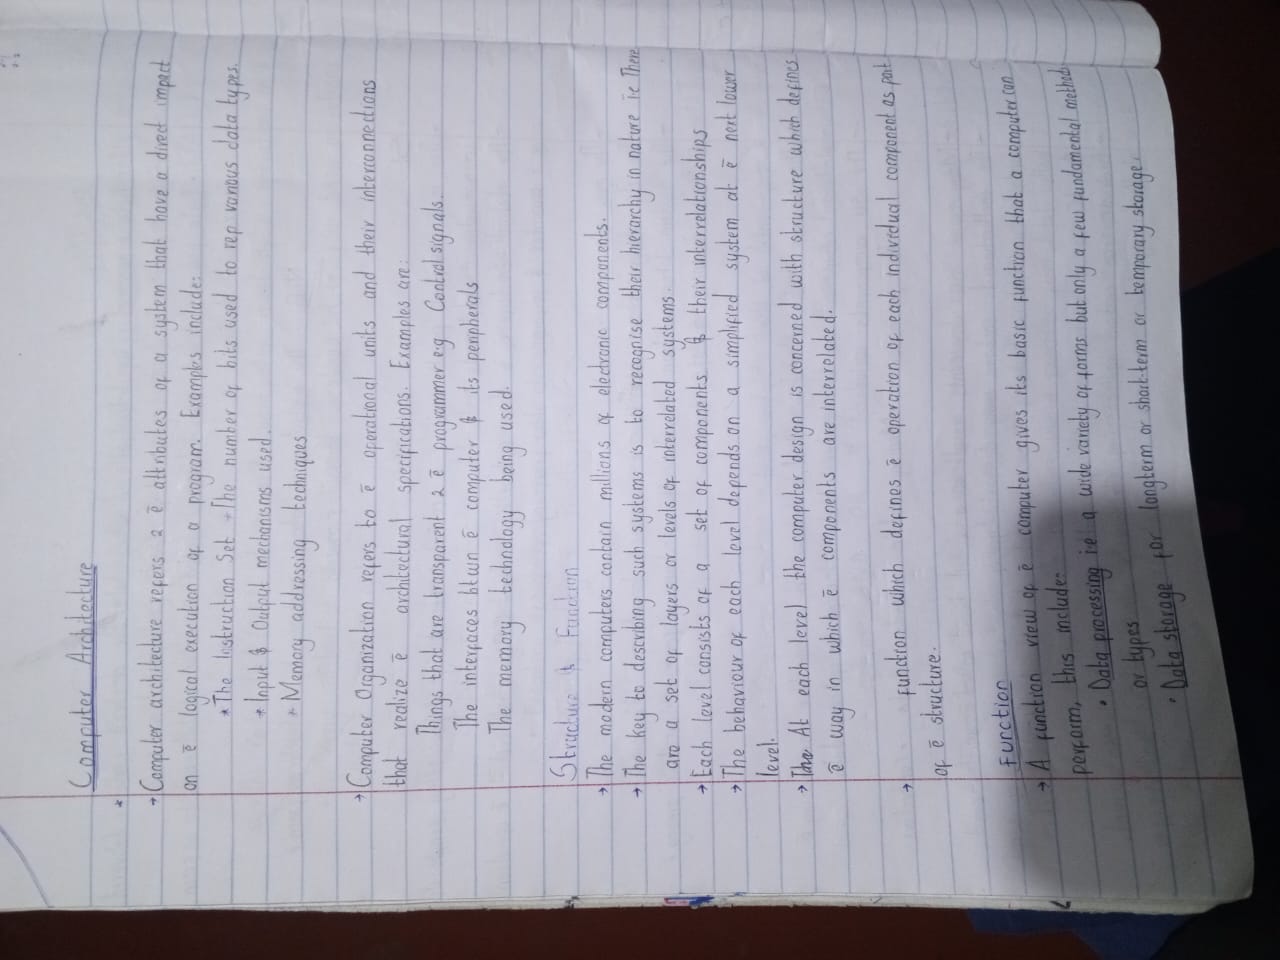 Computer Architecture
*
→ Computer architecture refers 2 ē attributes of a system that have a direct impact
on ē logical execution of a program. Examples include:
* The Instruction Set + The number of bits used to rep various data types.
* Input & Output mechanisms used.
* Memory addressing techniques
→ Computer Organization refers to ē operational units and their interconnections
that realize ē architectural specifications. Examples are:
Things that are transparent 2 ē programmer e.g Control signals.
The interfaces btwn ē computer & its peripherals
The memory technology being used.
Structure & Function
→ The modern computers contain millions of electronic components.
→ The key to describing such systems is to recognise their hierarchy in nature i.e There
are a set of layers or levels of interrelated systems.
→ Each level consists of a set of components & their interrelationships
→ The behaviour of each level depends on a simplified system at ē next lower
level.
→ The At each level the computer design is concerned with structure which defines
ē way in which ē components are interrelated.
→ function which defines ē operation of each individual component as part
of ē structure.
Function
→ A function view of ē computer gives its basic function that a computer can
perform, this include:
• Data processing i.e a wide variety of forms but only a few fundamental methods
or types
• Data storage for longterm or short-term or temporary storage.